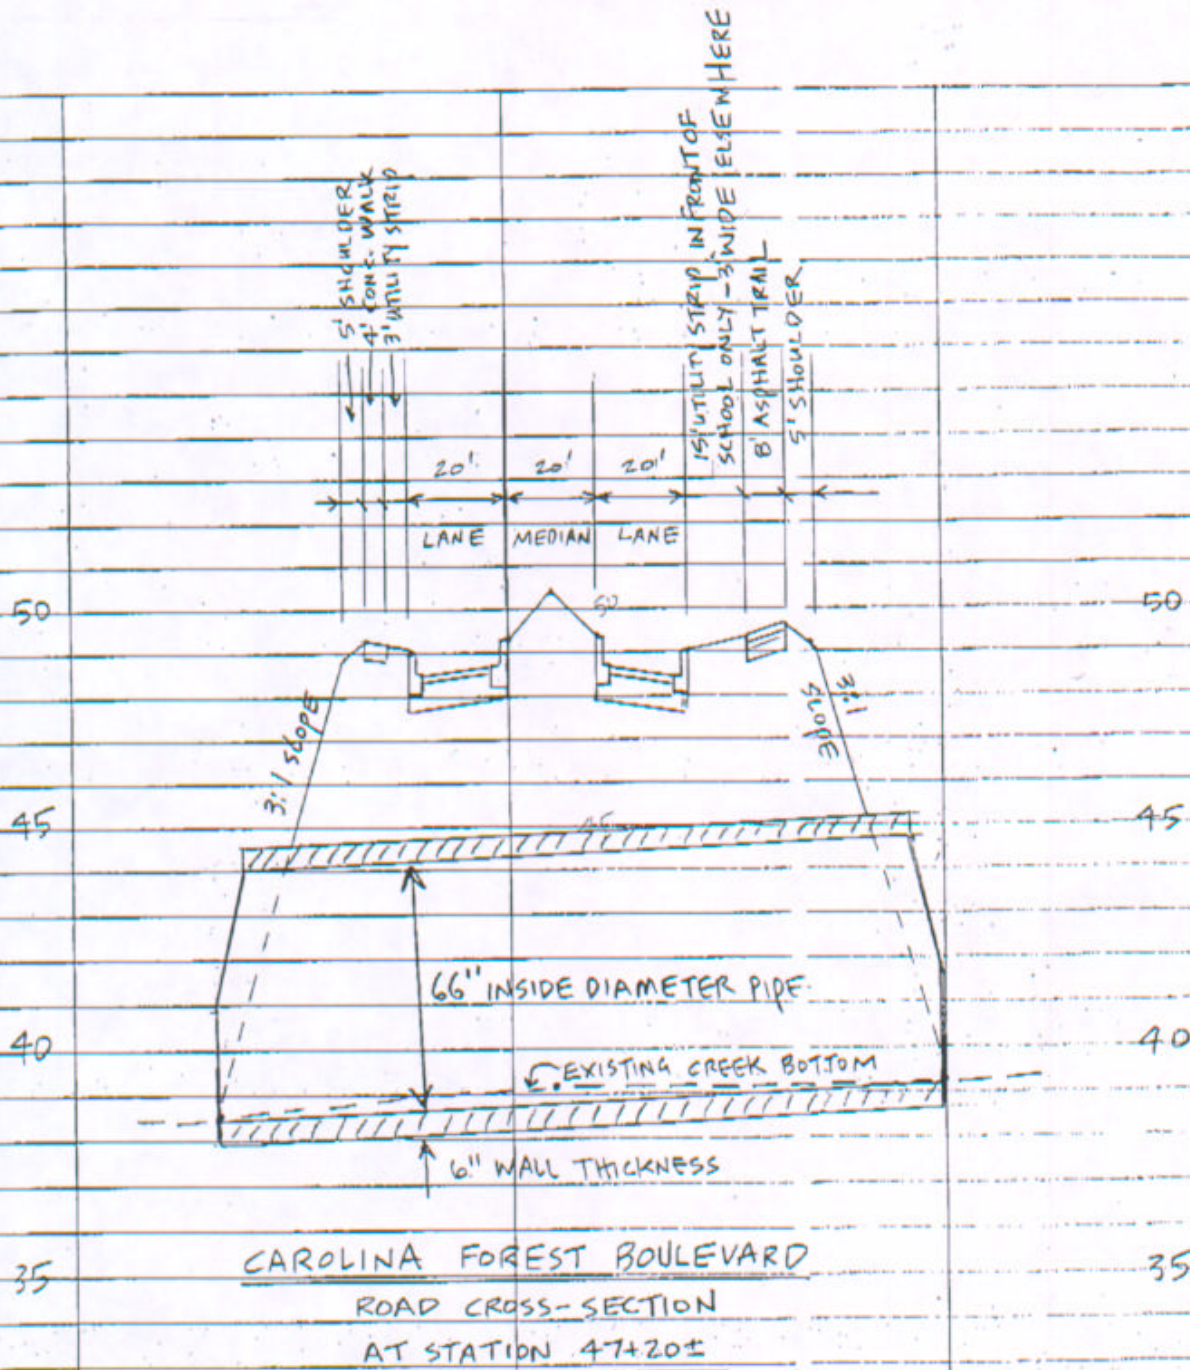 5' SHOULDER
4' CONC. WALK
3' UTILITY STRIP
15' UTILITY STRIP IN FRONT OF
SCHOOL ONLY - 3' WIDE ELSEWHERE
8' ASPHALT TRAIL
5' SHOULDER
20' 20' 20'
LANE MEDIAN LANE
50 50 50
3:1 SLOPE
3:1 SLOPE
45 45 45
66" INSIDE DIAMETER PIPE
40 40
EXISTING CREEK BOTTOM
6" WALL THICKNESS
CAROLINA FOREST BOULEVARD
35 35
ROAD CROSS-SECTION
AT STATION 47+20±